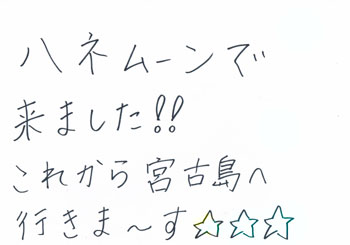 ハネムーンで
来ました!!
これから宮古島へ
行きま〜す☆☆☆